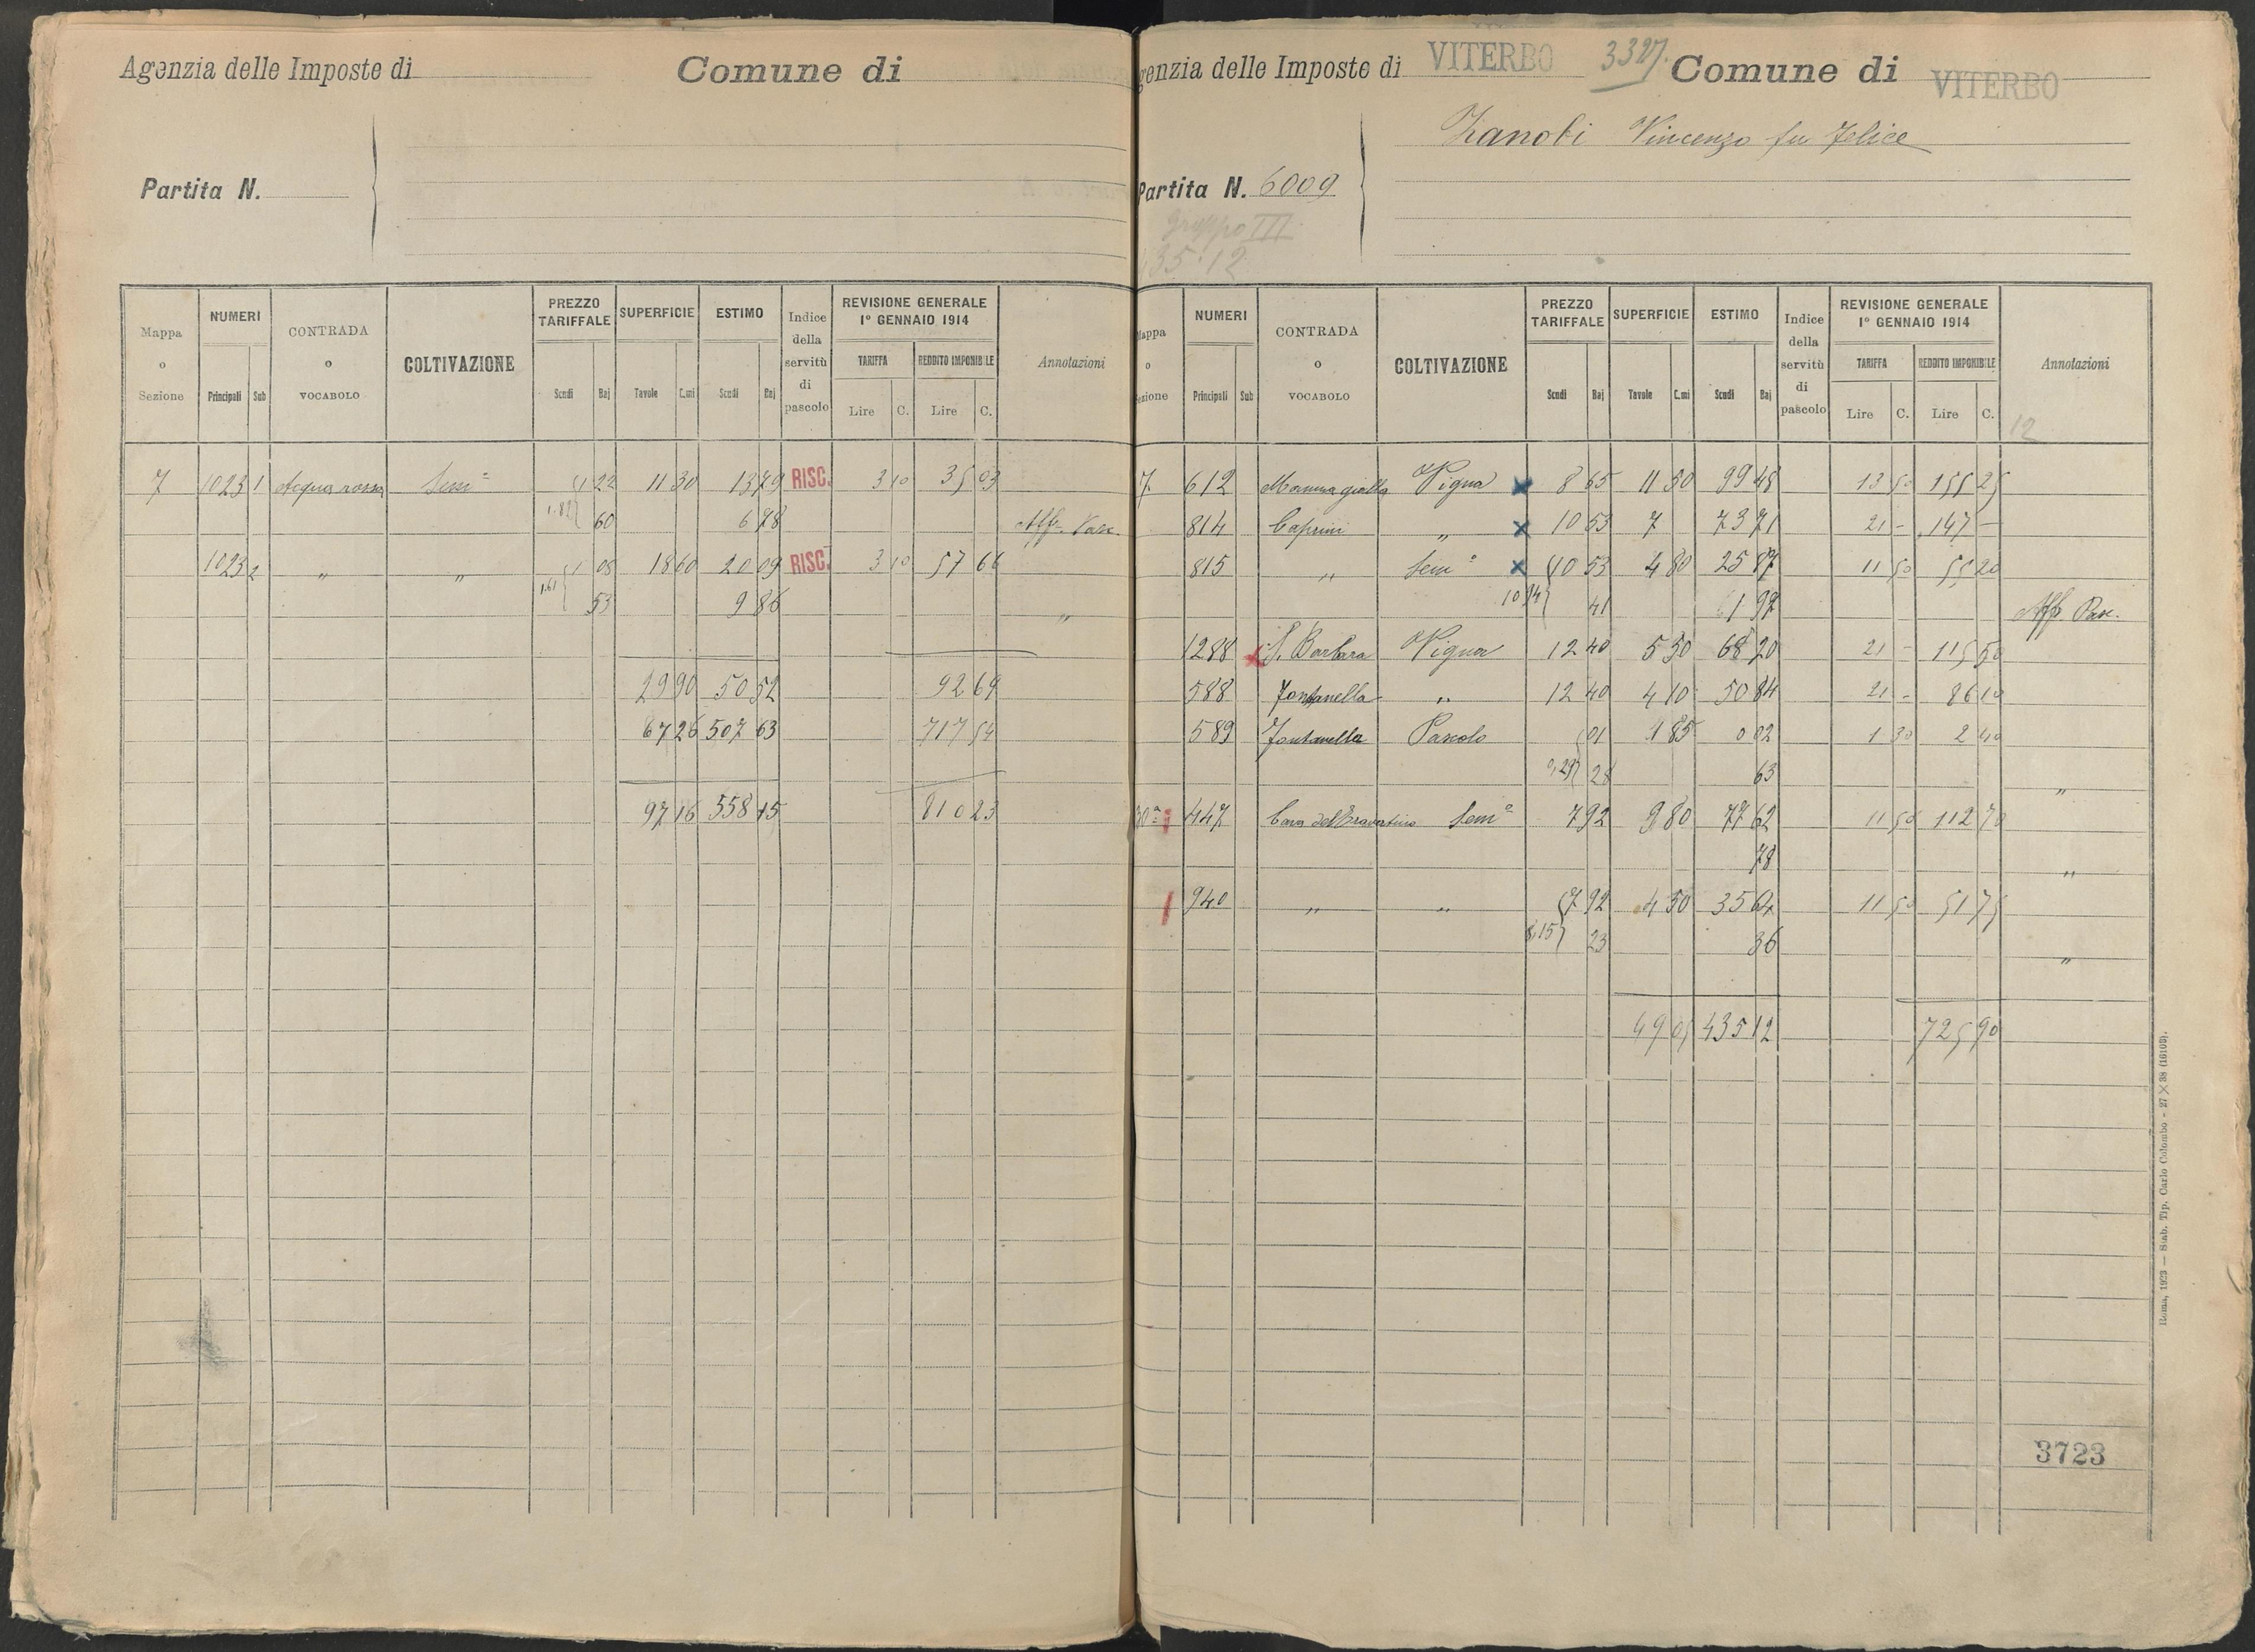 Agenzia delle Imposte di Comune di
Partita N.
Mappa o Sezione NUMERI Principali Sub CONTRADA o VOCABOLO COLTIVAZIONE PREZZO TARIFFALE Scudi Baj SUPERFICIE Tavole C.mi ESTIMO Scudi Baj Indice della servitù di pascolo REVISIONE GENERALE 1° GENNAIO 1914 TARIFFA Lire C. REDDITO IMPONIBILE Lire C. Annotazioni
7 1023 1 Acqua rossa Sem° 1 22 11 30 13 79 RISC. 3 10 35 03
1.82 60 6 78 Aff. Pasc.
1023 2 " " 1 08 18 60 20 09 RISC. 3 10 57 66
1.61 53 9 86 "
29 90 50 52 92 69
67 26 507 63 717 54
97 16 558 15 810 23
genzia delle Imposte di VITERBO 3327. Comune di VITERBO
Zanobi Vincenzo fu Felice
Partita N. 6009
Gruppo III
35.12
Mappa o Sezione NUMERI Principali Sub CONTRADA o VOCABOLO COLTIVAZIONE PREZZO TARIFFALE Scudi Baj SUPERFICIE Tavole C.mi ESTIMO Scudi Baj Indice della servitù di pascolo REVISIONE GENERALE 1° GENNAIO 1914 TARIFFA Lire C. REDDITO IMPONIBILE Lire C. Annotazioni
12
7 612 Mamma gialla Vigna x 8 65 11 50 99 48 13 50 155 25
814 Caprini " x 10 53 7 73 71 21 - 147 -
815 " Sem° x 10 53 4 80 25 87 11 50 55 20
10 94 41 1 97 Aff. Pasc.
1288 x S. Barbara Vigna 12 40 5 50 68 20 21 - 115 50
588 Fontanella " 12 40 4 10 50 84 21 - 86 10
589 Fontanella Pascolo 01 1 85 0 02 1 30 2 40
0,29 28 63 "
30ª 447 Cava del Travertino Sem° 7 92 9 80 77 62 11 50 112 70
78 "
940 " " 7 92 4 50 35 64 11 50 51 75
8,15 23 36 "
49 05 435 12 725 90
3723
Roma, 1923 — Stab. Tip. Carlo Colombo - 27 × 38 (16103).